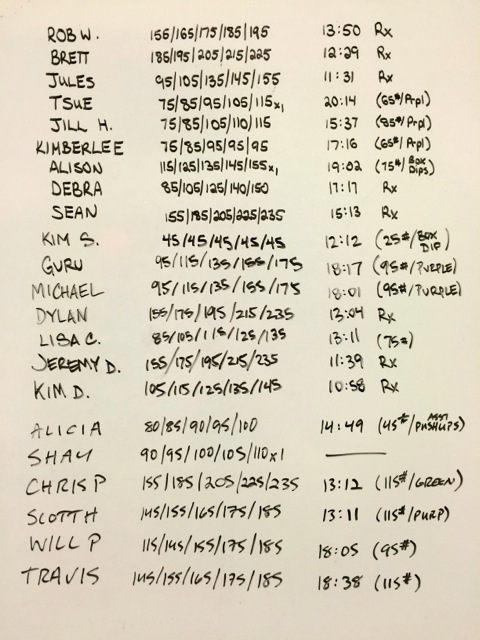 ROB W. 155/165/175/185/195 13:50 Rx
BRETT 185/195/205/215/225 12:29 Rx
JULES 95/105/135/145/155 11:31 Rx
TSUE 75/85/95/105/115x1 20:14 (65#/Prpl)
JILL H. 75/85/105/110/115 15:37 (85#/Prpl)
KIMBERLEE 75/85/95/95/95 17:16 (65#/Prpl)
ALISON 115/125/135/145/155x1 19:02 (75#/BOX DIPS)
DEBRA 85/105/125/140/150 17:17 Rx
SEAN 155/185/205/225/235 15:13 Rx
KIM S. 45/45/45/45/45 12:12 (25#/BOX DIP)
GURU 95/115/135/155/175 18:17 (95#/PURPLE)
MICHAEL 95/115/135/155/175 18:01 (95#/PURPLE)
DYLAN 155/175/195/215/235 13:04 Rx
LISA C. 85/105/115/125/135 13:11 (75#)
JEREMY D. 155/175/195/215/235 11:39 Rx
KIM D. 105/115/125/135/145 10:58 Rx
ALICIA 80/85/90/95/100 14:49 (45#/ASST PUSHUPS)
SHAY 90/95/100/105/110x1
CHRIS P 155/185/205/225/235 13:12 (115#/GREEN)
SCOTT H 145/155/165/175/185 13:11 (115#/PURP)
WILL P 115/145/155/175/185 18:05 (95#)
TRAVIS 145/155/165/175/185 18:38 (115#)